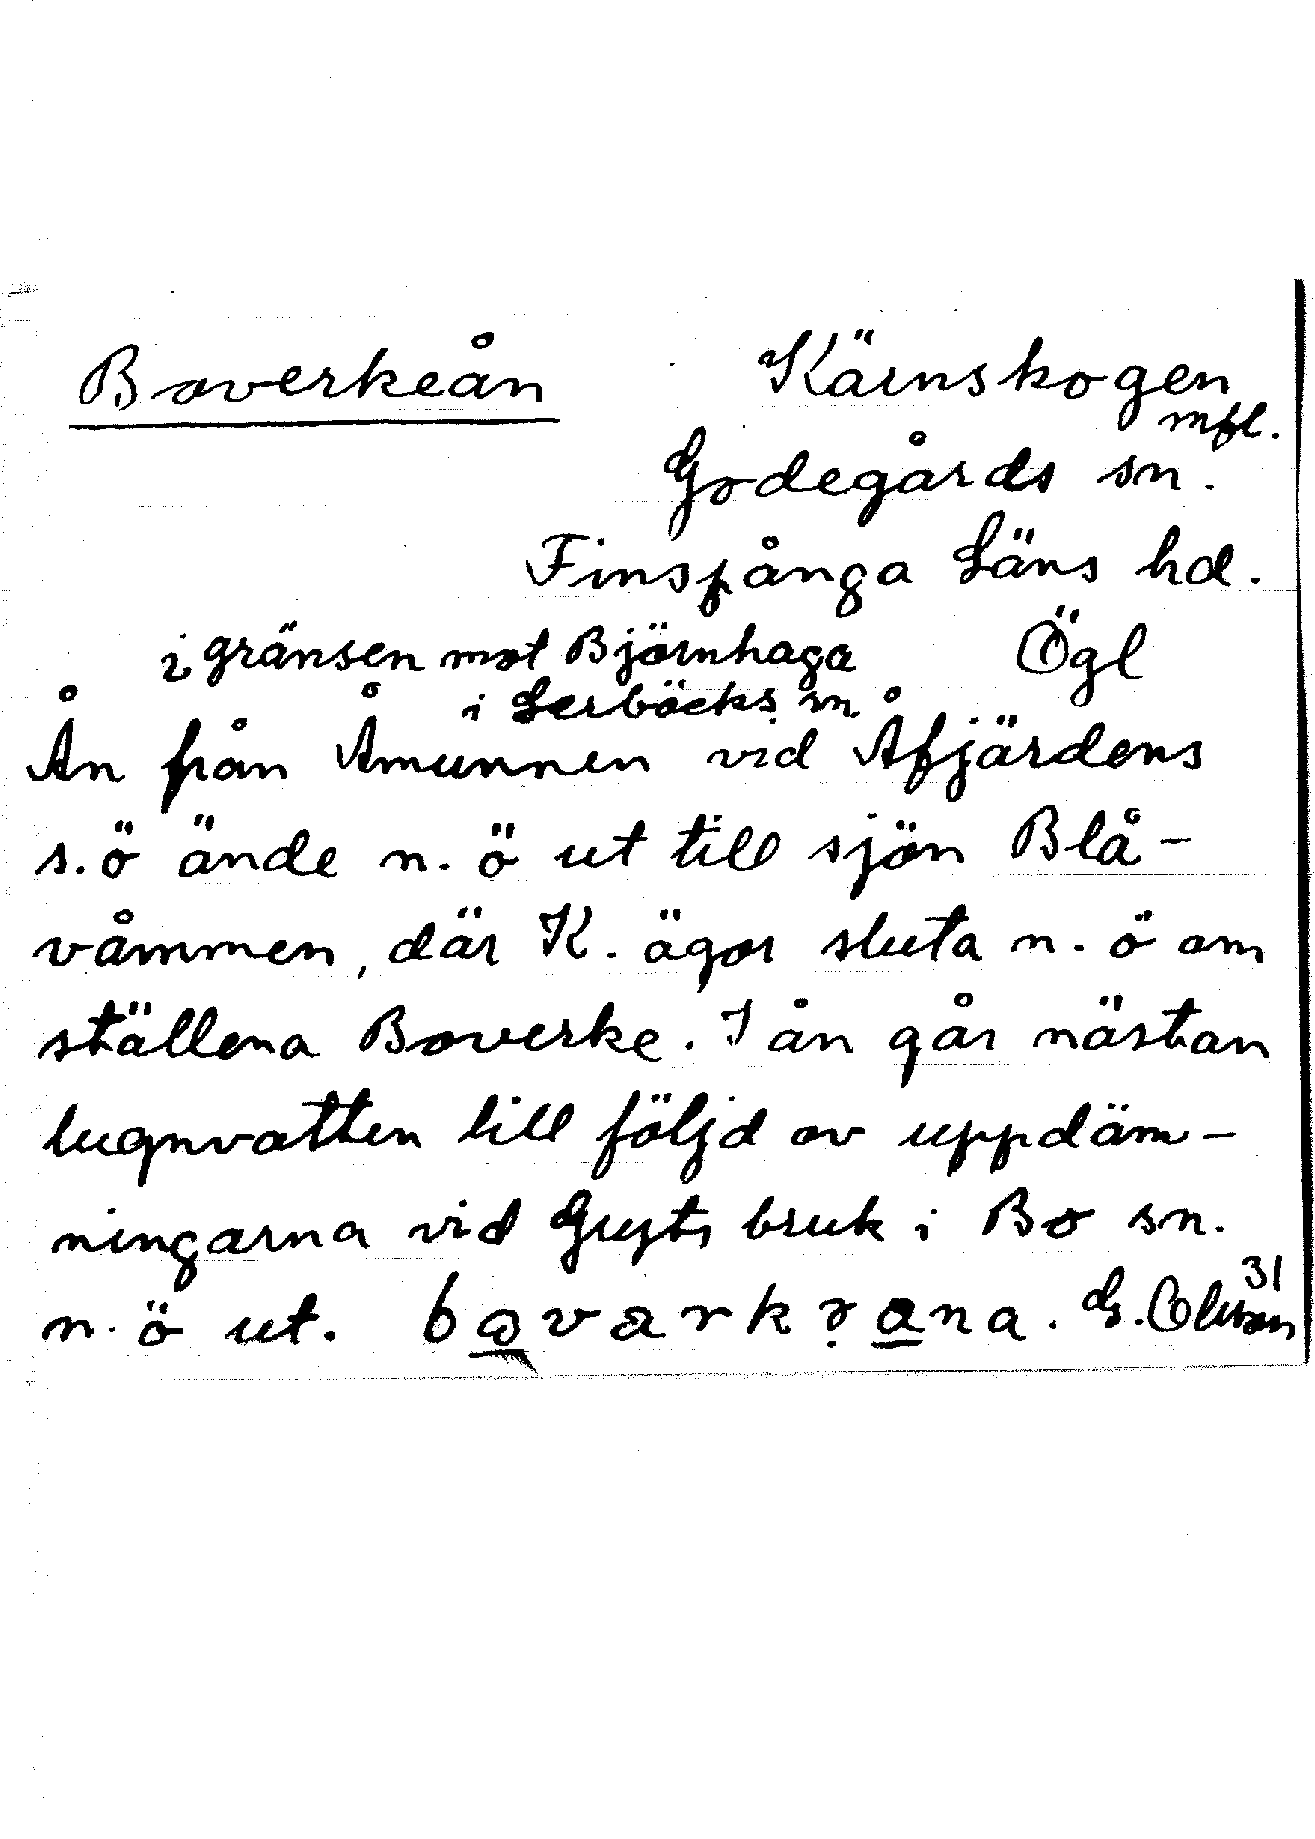 Boverkeån Kärnskogen
mfl.
Godegårds sn.
Finspånga Läns hd.
i gränsen mot Björnhaga Ögl
i Lerbäcks sn
Ån från Åmunnen vid Åfjärdens
s.ö ände n.ö ut till sjön Blå-
våmmen, där K. ägor sluta n.ö om
ställena Boverke. I ån går nästan
lugnvatten till följd av uppdäm-
ningarna vid Gryts bruk i Bo sn.
n.ö ut. G. Olsson 31